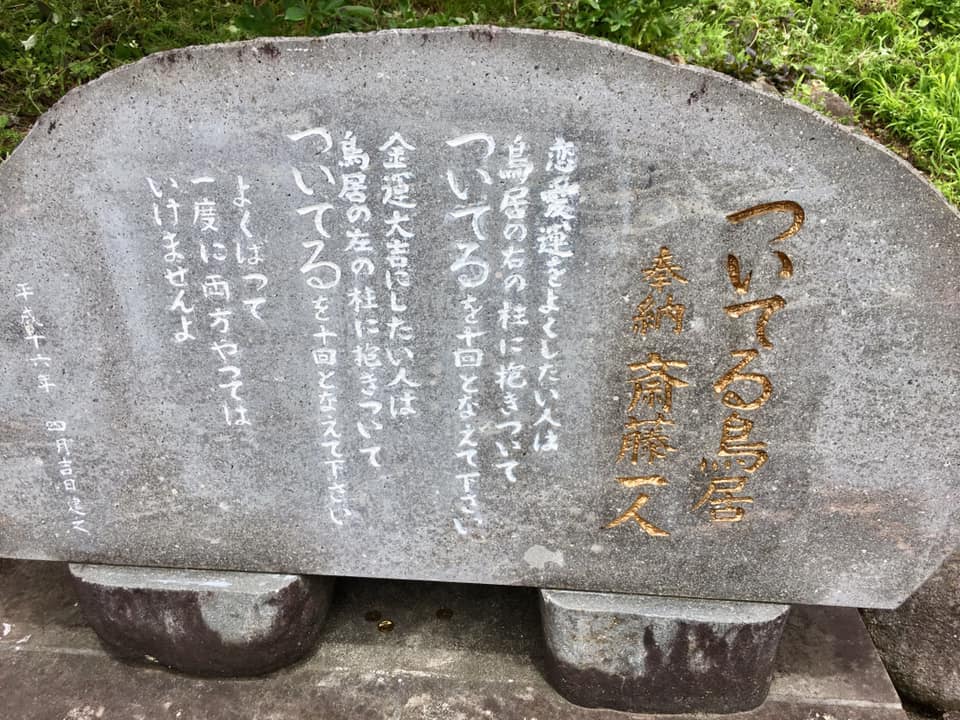 ついてる鳥居
奉納 斎藤一人
恋愛運をよくしたい人は
鳥居の右の柱に抱きついて
ついてるを十回となえて下さい
金運大吉にしたい人は
鳥居の左の柱に抱きついて
ついてるを十回となえて下さい
よくばって
一度に両方やっては
いけませんよ
平成十六年 四月吉日建之